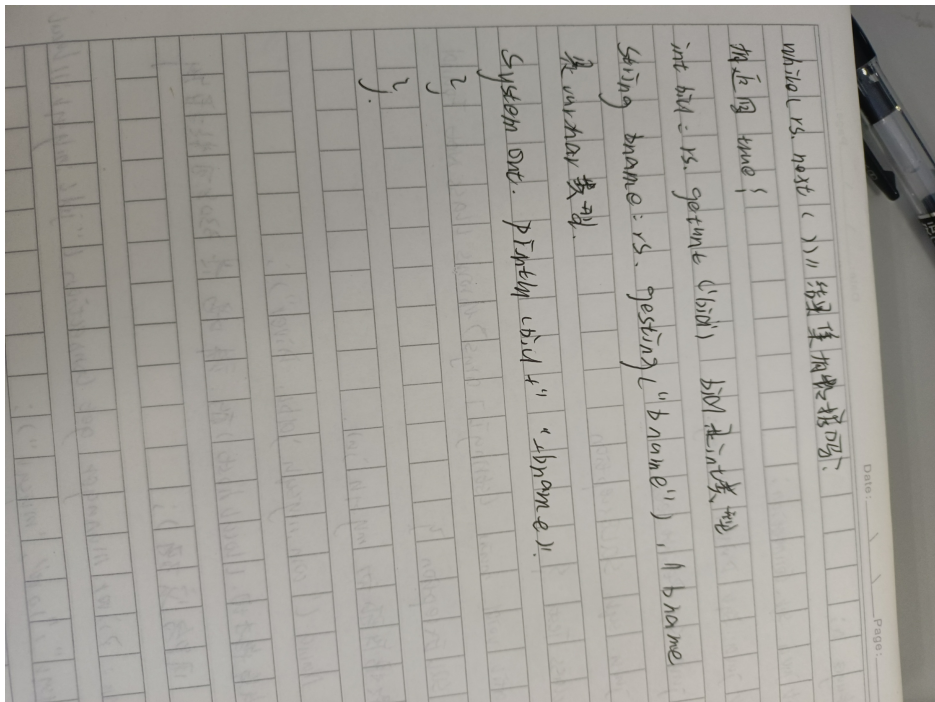 Date: Page:
while(rs.next())// 结果集有数据吗?
有返回 true{
int bid = rs.getint("bid") bid 是int类型
String bname = rs.gesting("bname"), // bname
是varchar类型.
System Out. println(bid+" "+bname).
}
}.